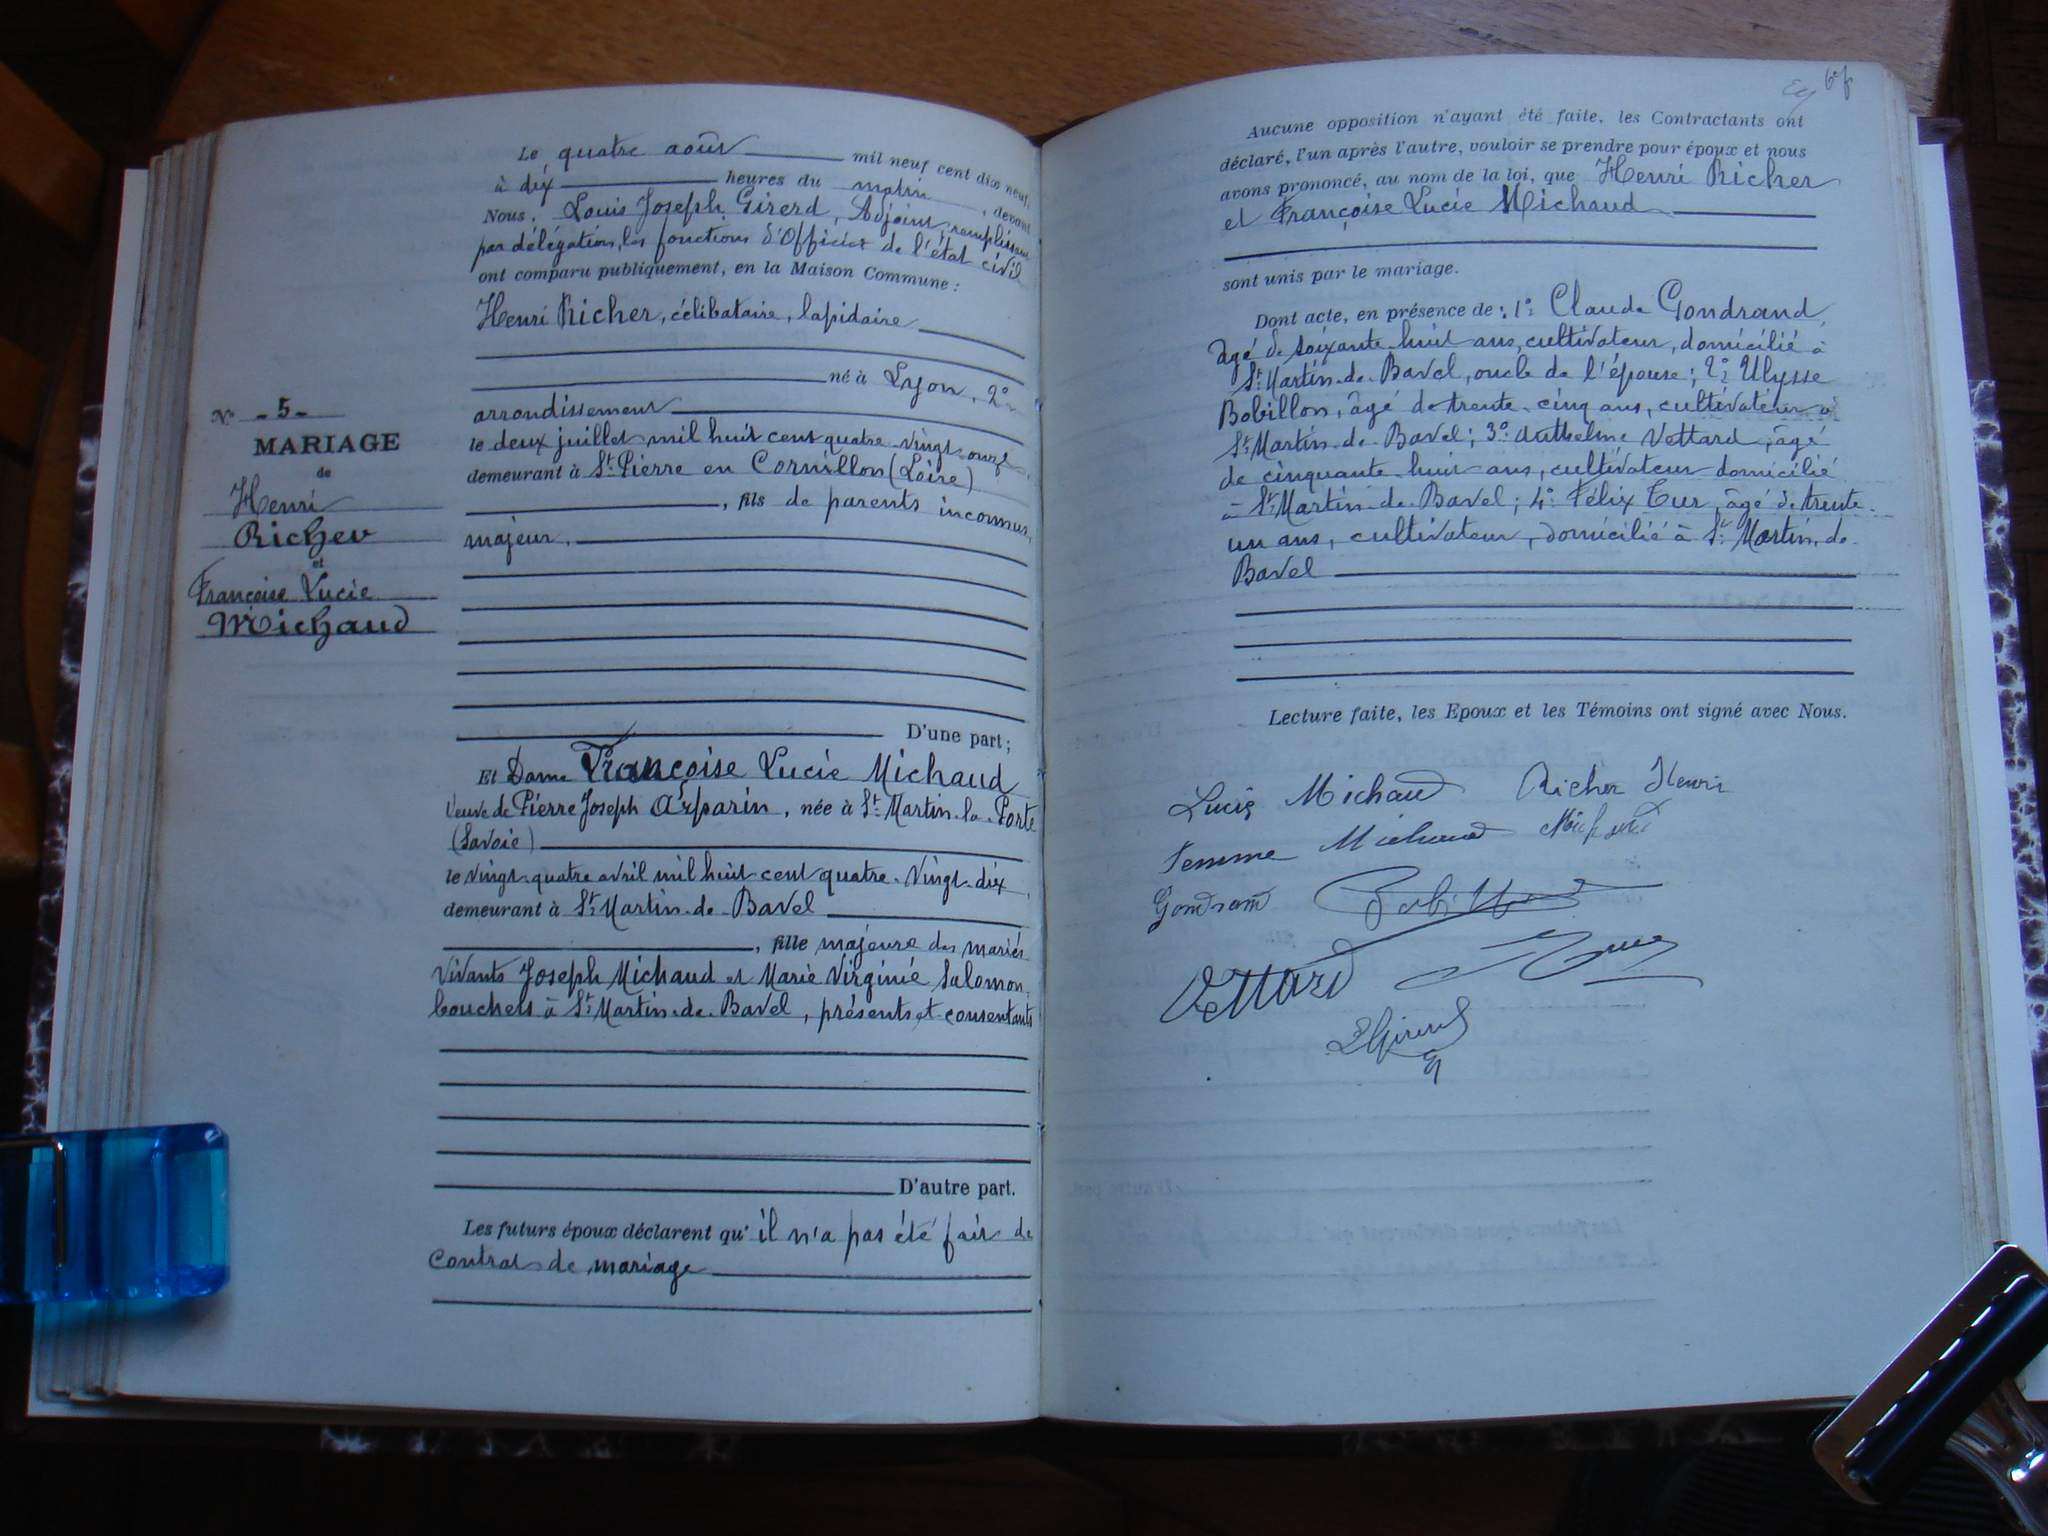 N° - 5 -
MARIAGE
de
Henri
Richer
et
Françoise Lucie
Michaud
Le quatre août mil neuf cent dix neuf,
à dix heures du matin, devant
Nous, Louis Joseph Girerd, Adjoint, remplissant
par délégation, les fonctions d'Officier de l'état civil
ont comparu publiquement, en la Maison Commune :
Henri Richer, célibataire, lapidaire
né à Lyon, 2e
arrondissement
le deux juillet mil huit cent quatre-vingt-onze,
demeurant à St Pierre en Cornillon (Loire)
, fils de parents inconnus,
majeur.
D'une part ;
Et Dame Françoise Lucie Michaud
Veuve de Pierre Joseph Arparin, née à St Martin-la-Porte
(Savoie)
le vingt-quatre avril mil huit cent quatre-vingt-dix,
demeurant à St Martin-de-Bavel
, fille majeure des mariés
Vivants Joseph Michaud et Marie Virginie Salomon,
bouchers à St Martin-de-Bavel, présents et consentants
D'autre part.
Les futurs époux déclarent qu'il n'a pas été fait de
contrat de mariage
Aucune opposition n'ayant été faite, les Contractants ont
déclaré, l'un après l'autre, vouloir se prendre pour époux et nous
avons prononcé, au nom de la loi, que Henri Richer
et Françoise Lucie Michaud
sont unis par le mariage.
Dont acte, en présence de : 1° Claude Gondrand,
âgé de soixante-huit ans, cultivateur, domicilié à
St Martin-de-Bavel, oncle de l'épouse ; 2° Ulysse
Bobillon, âgé de trente-cinq ans, cultivateur à
St Martin-de-Bavel ; 3° Anthelme Vettard, âgé
de cinquante-huit ans, cultivateur domicilié
à St Martin-de-Bavel ; 4° Félix Tur, âgé de trente-
un ans, cultivateur, domicilié à St Martin-de-
Bavel
Lecture faite, les Epoux et les Témoins ont signé avec Nous.
Lucie Michaud Richer Henri
femme Michaud Michaud
Gondrand Bobillon
Vettard
LGirerd